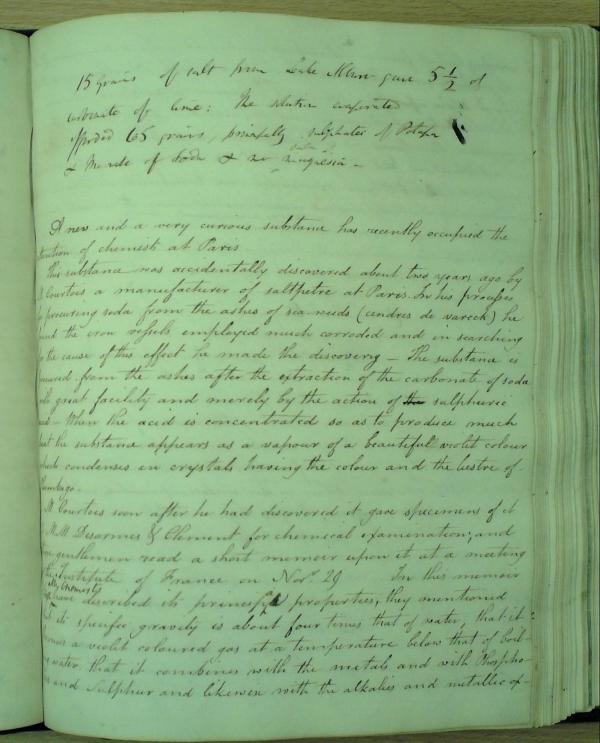 15 Grains of salt from Lake gave 5 1/2 of
of lime: The solution evaporated
6.5 grains, principally sulphates of Potassa
& Muriate of Soda & no magnesia –
A new and a very curious substance has recently occupied the
of chemists at Paris
This substance was accidentally discovered about two years ago by
Courtois a manufacturer of saltpetre at Paris. In his processes
procuring soda from the ashes of sea weeds (cendres de vareck) he
the iron vessels employed much corroded and in searching
the cause of this effect he made the discovery – The substance is
from the ashes after the extraction of the carbonate of soda
great facility and merely by the action of the sulphuric
– When the acid is concentrated so as to produce much
the substance appears as a vapour of a beautiful violet colour
which condenses in crystals having the colour and the lustre of

M. Courtois soon after he had discovered it gave specimens of it
M.M Desormes & Clement for chemical examination; and
gentlemen read a short memoir upon it at a meeting
the Institute of France on Novr. 29 In this memoir
these chemists
have described its principal properties, they mentioned
its specific gravity is about four times that of water, that it
a violet coloured gas at a temperature below that of boil-
water, that it combines with the metals and with Phospho-
and Sulphur and likewise with the alkalies and metallic ox-